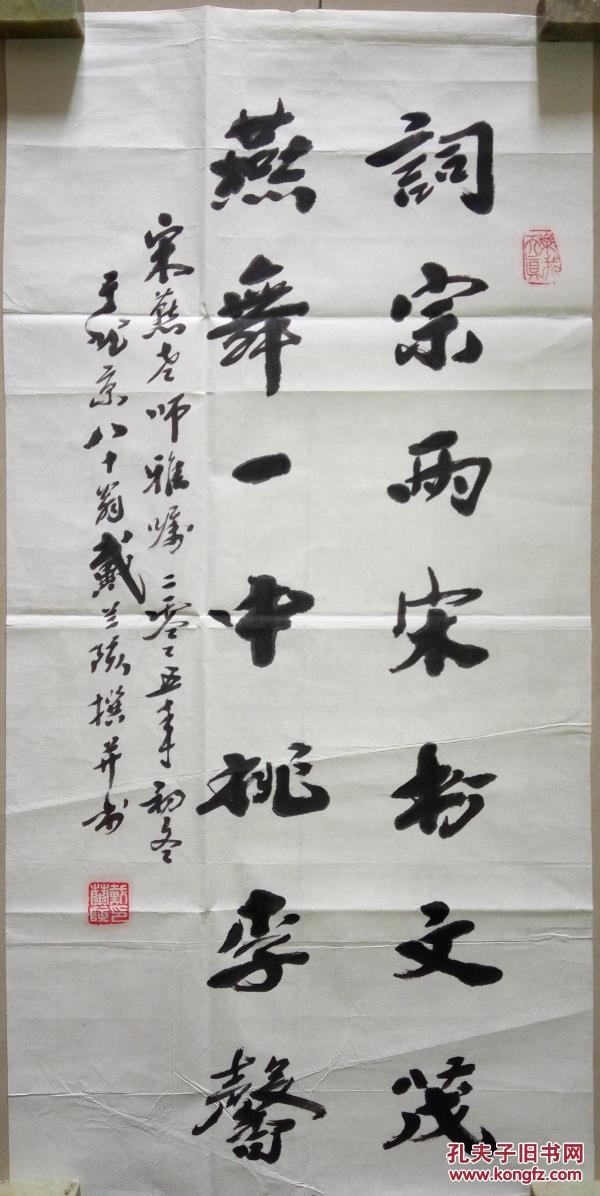 詞宗兩宋文茂
燕舞一中桃李馨
宋燕老师雅嘱 二零零五年初冬
于京八十翁戴兰撰并书
孔夫子旧书网
www.kongfz.com